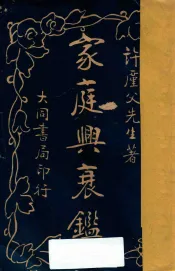 許廑父先生著
家庭興衰鑑
大同書局印行